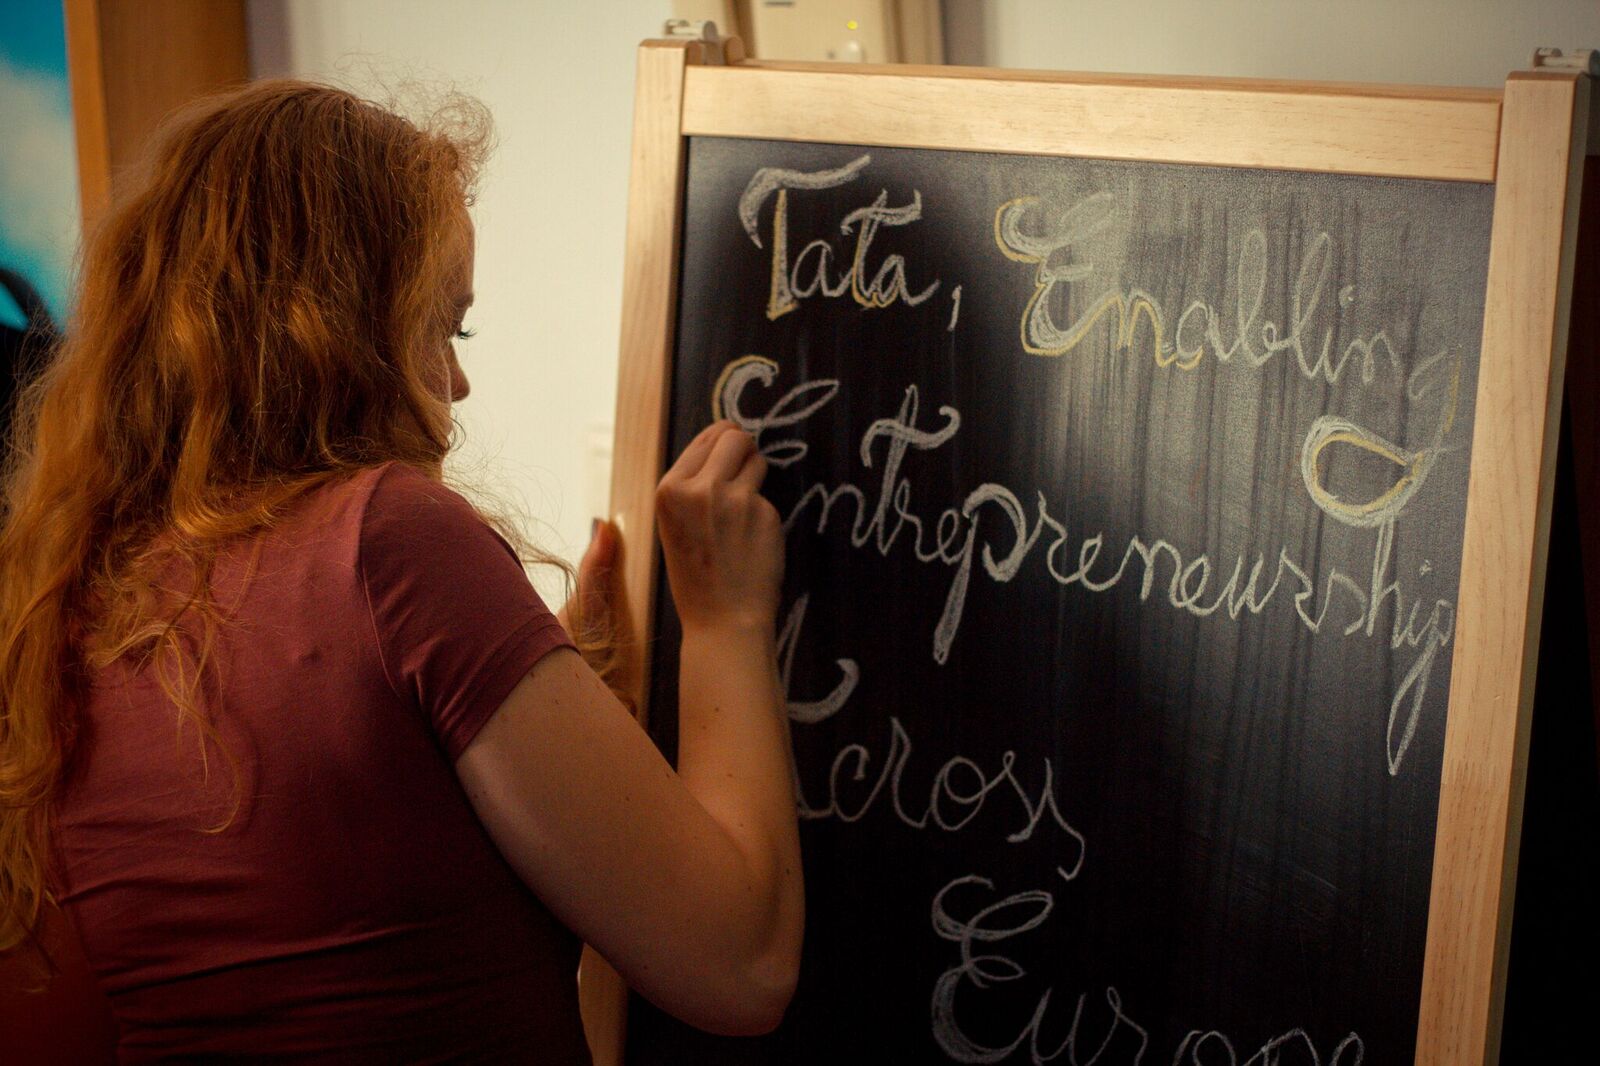 Tata, Enabling
Entrepreneurship
Across
Europe